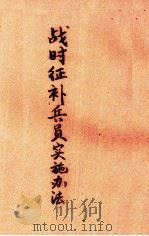 战时征补兵员实施办法